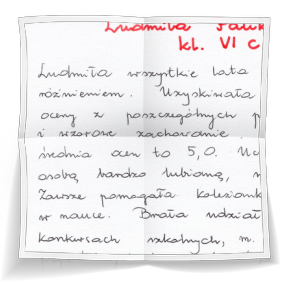 Ludmiła
kl. VI c
Ludmiła wszystkie lata
różnieniem. Uzyskiwała
oceny z poszczególnych p
i wzorowe zachowanie.
średnia ocen to 5,0. Uc
osobą bardzo lubianą, n
Zawsze pomagała koleżank
w nauce. Brała udział
konkursach szkolnych, m.